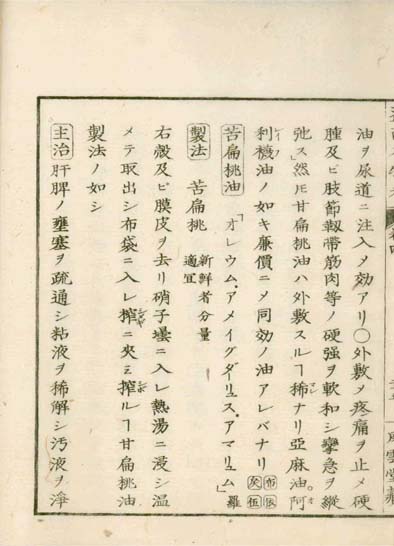 油ヲ尿道ニ注入〆効アリ〇外敷〆疼痛ヲ止メ硬
腫及ヒ肢節靱帯筋肉等ノ硬强ヲ軟和シ攣急ヲ縦
弛ス然𪜈甘扁桃油ハ外敷スルヿ稀ナリ亞麻油阿
利襪油ノ如キ廉價ニ〆同効ノ油アレバナリ 布依 灰伍
苦扁桃油 「オレウム、アメイグダーリュス、アマリュム」羅
製法 苦扁桃 新鮮者分量適宜
右殼及ビ膜皮ヲ去リ硝子壜ニ入レ熱湯ニ浸シ温
メテ取出シ布袋ニ入レ搾ニ夾ミ搾ルヿ甘扁桃油
製法ノ如シ
主治 肝脾ノ壅塞ヲ疏通シ粘液ヲ稀解シ汚液ヲ淨